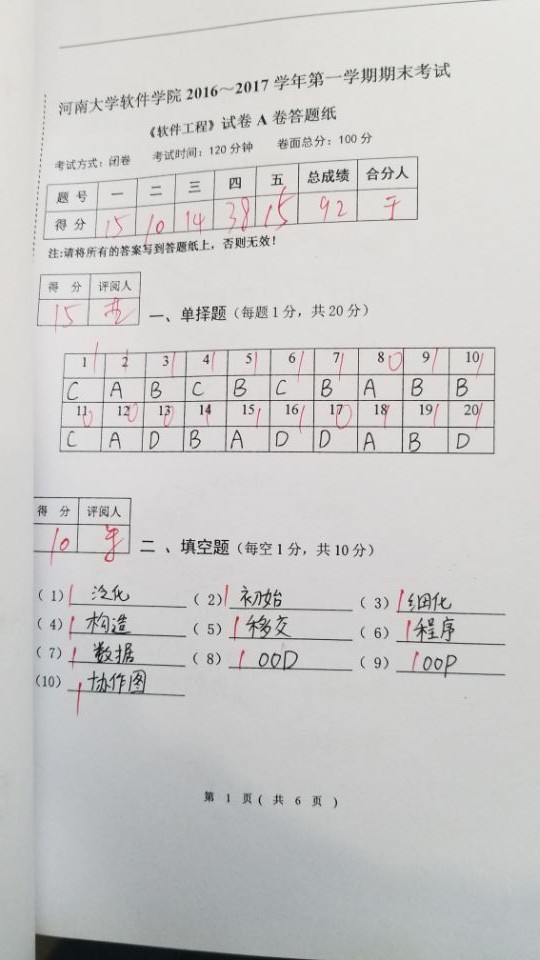 河南大学软件学院 2016～2017 学年第一学期期末考试
《软件工程》试卷 A 卷答题纸
考试方式：闭卷 考试时间：120 分钟 卷面总分：100 分
题 号 一 二 三 四 五 总成绩 合分人
得 分 15 10 14 38 15 92
注:请将所有的答案写到答题纸上，否则无效！
得 分 评阅人
15
一、单择题（每题 1 分，共 20 分）
1 2 3 4 5 6 7 8 9 10
1 1 1 1 1 1 1 0 1 1
C A B C B C B A B B
11 12 13 14 15 16 17 18 19 20
0 0 0 1 1 1 0 1 1 1
C A D B A D D A B D
得 分 评阅人
10
二 、填空题（每空 1 分，共 10 分）
（ 1） 1 泛化 （ 2） 1 初始 （ 3） 1 细化
（ 4） 1 构造 （ 5） 1 移交 （ 6） 1 程序
（ 7） 1 数据 （ 8） 1 OOD （ 9） 1 OOP
（10） 1 协作图
第 1 页（ 共 6 页 ）